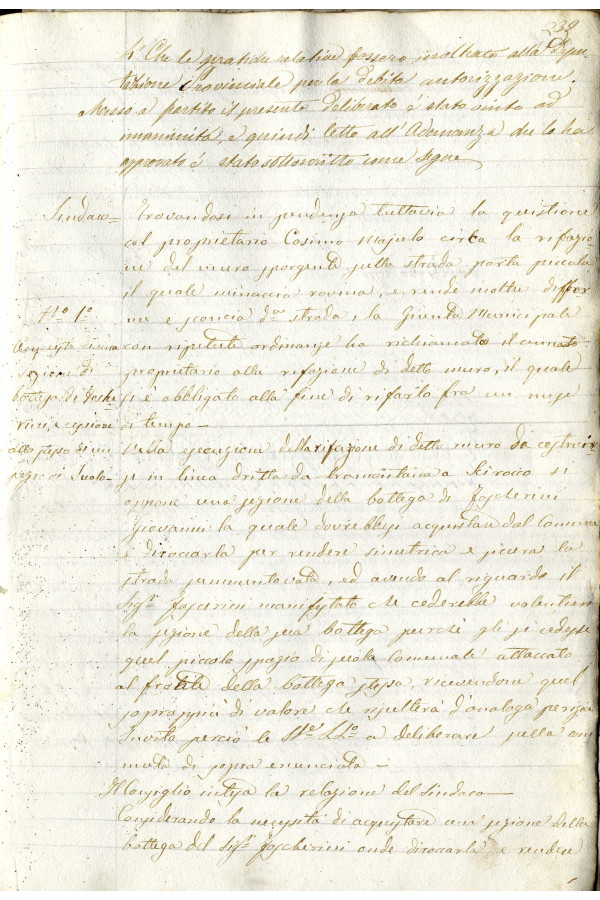 239
4º Che le pratiche relative fossero inoltrate alla Depu-
tazione Provinciale per la debita autorizzazione.
Messo a partito il presente deliberato è stato vinto ad
unanimità, e quindi letto all'Adunanza che lo ha
approvato è stato sottoscritto come segue
Sindaco— Trovandosi in pendenza tuttavia la quistione
col proprietario Cosimo Majulo circa la rifazio
ne del muro sporgente sulla strada porta piccola
il quale minaccia rovina, e rende moltre diffor
me e sconcia d.ª strada, la Giunta Municipale
con ripetute ordinanze ha richiamato il
proprietario alla rifazione di detto muro, il quale
si è obbligato alla fine di rifarlo fra un mese
di tempo—
Nº 1º
Acquisto di una
sezione di
bottega di Foske
rini, e cessione
allo stesso di un
pezzo di Suolo—
Nella esecuzione della rifazione di detto muro da costruir
si in linea dritta da tramontana a Scirocco si
oppone una sezione della bottega di Foscherini
Giovanni la quale dovrebbesi acquistare dal Comune
e diroccarla per rendere simetrica e sicura la
strada summentovata, ed avendo al riguardo il
Sigʳ Foscerini manifestato che cederebbe volentieri
la sezione della sua bottega purchè gli si cedesse
quel piccolo spazio di suolo Comunale attaccato
al frontale della bottega stessa, ricevendone quel
soprappiù di valore che risulterà d'analoga perizia
Invita perciò le SSº LLº a deliberare sulla am
di sopra enunciata—
Il Consiglio intesa la relazione del Sindaco—
Considerando la necessità di acquistare una sezione della
bottega del Sigʳ Foscherini onde diroccarla e rendere